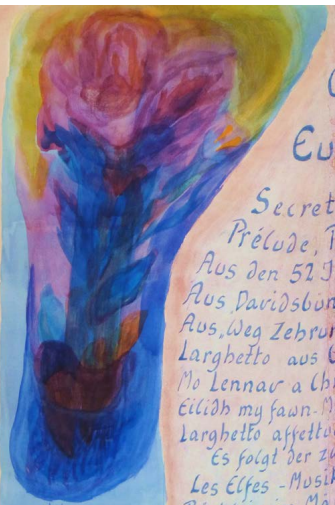 Eu
Secret
Prélude,
Aus den 52 J
Aus Davidsbün
Aus Weg Zehrun
Larghetto aus
Mo Lennav a Ch
Eilidh my fawn - M
Larghetto affettu
Es folgt der zw
Les Elfes - Musik